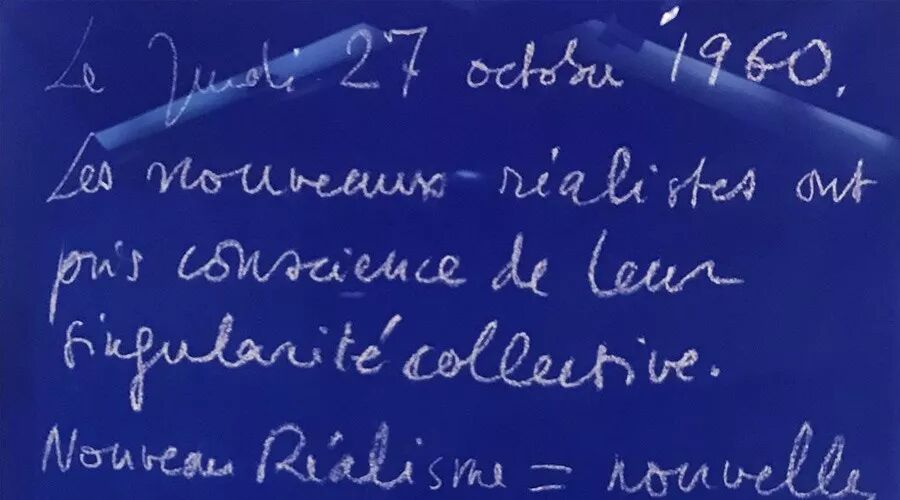 Le Jeudi 27 octobre 1960.
Les nouveaux réalistes ont
pris conscience de leur
singularité collective.
Nouveau Réalisme = nouvelle